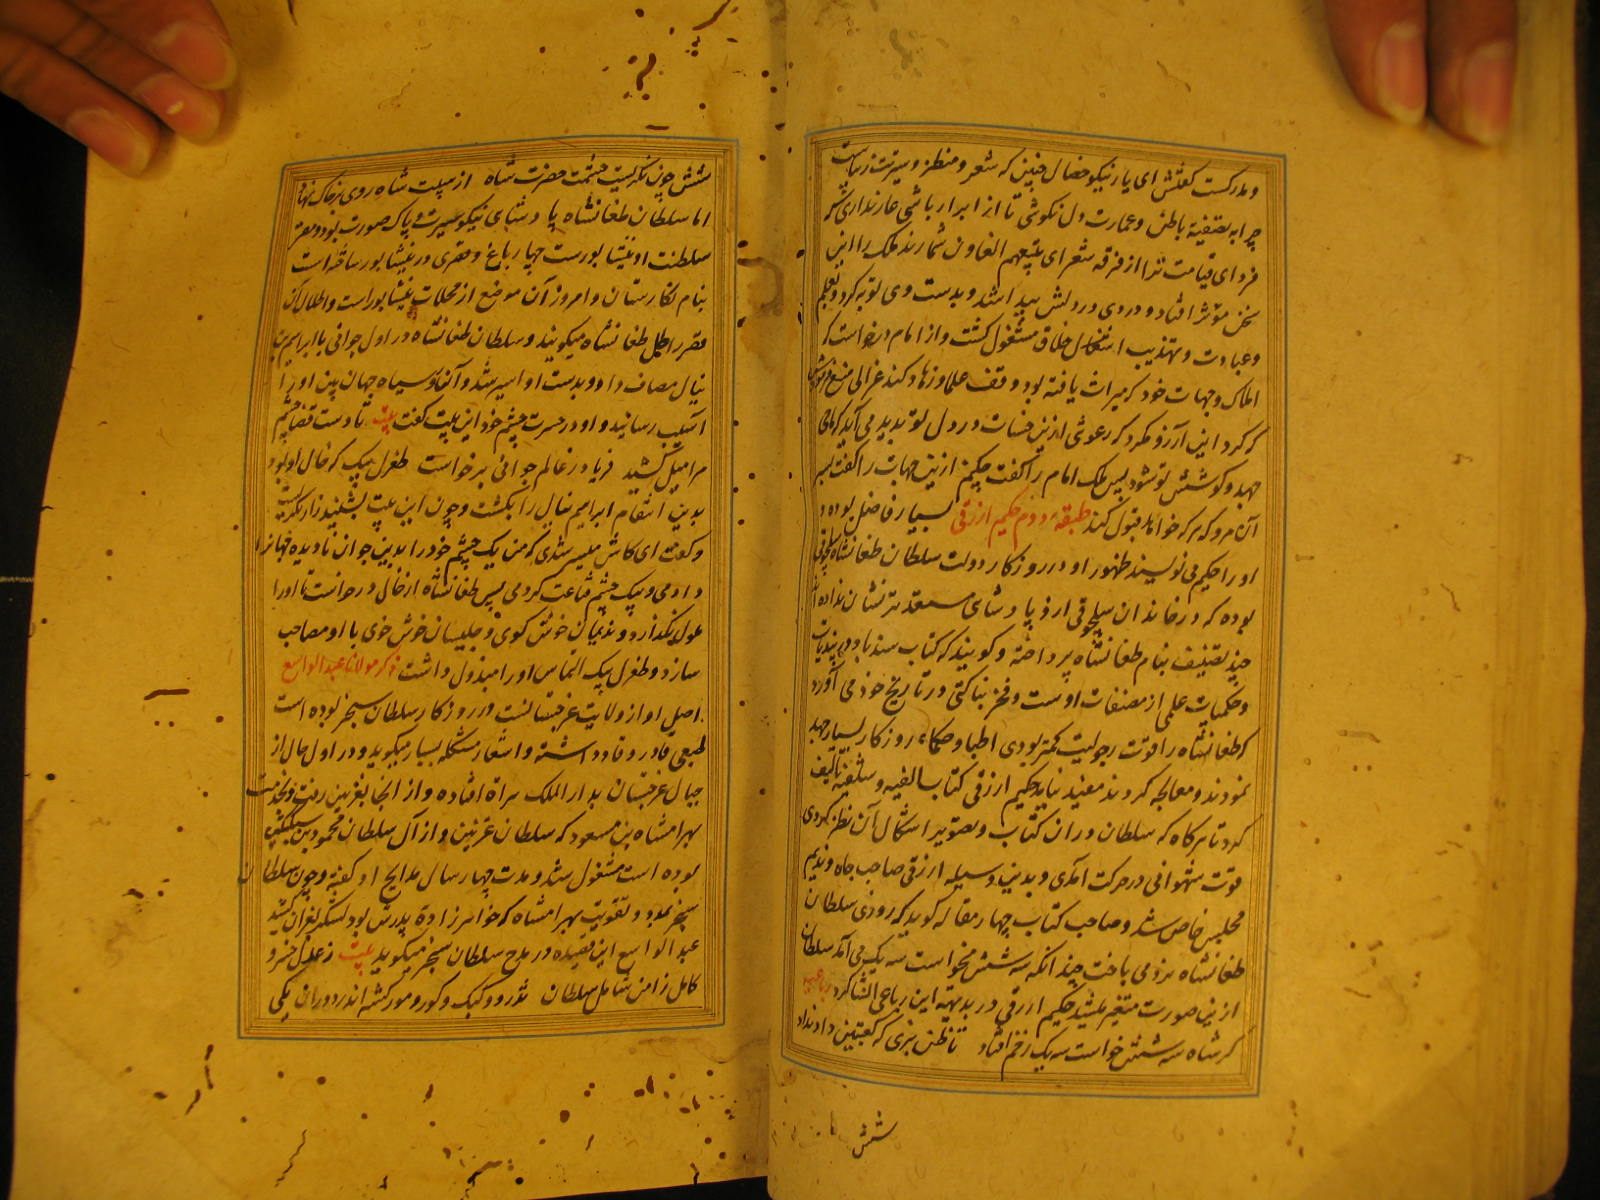 و مدرکست گفتش ای یار نیکو خصال چنین که شعر و منظر و سیرت زیباست
چرا به تصفیه باطن و عمارت دل نکوشی تا از ابرار باشی عار نداری که
فردای قیامت ترا از فرقه شعرای یتبعهم الغاون شمارند ملک را این
سخن موثر افتاد و دردی در دلش پیدا شد و بدست وی توبه کرد و بعلم
و عبادت و تهذیب اخلاق مشغول گشت و از امام درخواست که
املاک و جهات خود که میراث یافته بود وقف علما و زهاد کند غزالی منع
کرد این آرزو مکرد که رعونتی ازین در دل تو پدید می آید که
جهد و کوشش تو شود پس ملک امام را گفت چکنم ازین جهات را گفت بسپر
آن مرو که هر که خواهد قبول کند طبقهٔ دوم حکیم ازرقی بسیار فاضل بوده و
او را حکیم می نویسند ظهور او در روزکار دولت سلطان طغانشاه سلجوقی
بوده که در خاندان سلجوقی ازو پادشاهی مستعدتر نشان نداده اند
چند تصنیف بنام طغانشاه پرداخته و کویند که کتاب سندباد در پندیات
و حکمیات عملی از مصنفات اوست و فخر بناکتی در تاریخ خود می آورد
که طغانشاه را قوت رجولیت کمتر بودی اطبا و حکماء روزکار بسیار جهد
نمودند و معالجه کردند مفید نیامد حکیم ازرقی کتاب الفیه و شلفیه تالیف
کرد تا هر کاه که سلطان دران کتاب و تصویر اشکال آن نظر کردی
قوت شهوانی در حرکت آمدی و بدین وسیله ازرقی صاحب جاه و ندیم
مجلس خاص شد و صاحب کتاب چهار مقاله کوید که روزی سلطان
طغانشاه نرد می باخت چندانکه سه شش میخواست سه یک می آمد سلطان
ازین صورت متغیر میشد حکیم ازرقی در بدیهه این رباعی انشا کرد رباعیه
کر شاه سه شش خواست سه یک زخم افتاد تا ظن نبری که کعبتین داد نداد
شش
شش چون نکریست حشمت حضرت شاه از هیبت شاه روی بر خاک نهاد
اما سلطان طغانشاه پادشاهی نیکو سیرت و پاک صورت بود و مقر
سلطنت او نیشابورست چهار باغ و قصری در نیشابور ساخته است
بنام نکارستان و امروز آن موضع از محلات نیشابور است و اطلال آن
قصر را طلل طغانشاه میکویند و سلطان طغانشاه در اول جوانی با ابراهیم بن
نیال مصاف داد و بدست او اسیر شد و آن سیاه جهان بین او را
آسیب رسانید و او در حسرت چشم خود این بیت گفت بیت تا دست قضا چشم
مرا میل کشید فریاد ز عالم جوانی برخواست طغرل بیک که خال او بود
بدین انتقام ابراهیم نیال را بکشت و چون این بیت بشنید زار بکریست
و کفت ای کاش میسر شدی که من یک چشم خود را بدین جوان نادیده جهان
دادمی و بیک چشم قناعت کردمی پس طغانشاه از خال درخواست تا او را
ملول نکذارد و ندیمان خوش کوی و جلیسان خوش خوی با او مصاحب
سازد و طغرل بیک التماس او را مبذول داشت ذکر مولانا عبد الواسع
اصل او از ولایت غرجستانست در روزکار سلطان سنجر بوده است
طبعی قادر و داشته و اشعار مشکله بسیار میکوید و در اول حال از
جبال غرجستان بدار الملک هراة افتاده و از آنجا بغزنین رفت و بخدمت
بهرامشاه بن مسعود که سلطان غزنین و از آل سلطان محمود بن سبکتکین
بوده است مشغول شد و مدت چهار سال مدایح او کفته و چون سلطان
سنجر بمدد و تقویت بهرامشاه که خواهرزادهٔ پدرش بود لشکر بغزنین کشید
عبد الواسع این قصیده در مدح سلطان سنجر میکوید بیت ز عدل خسرو
کامل ز امن شامل سلطان تذرو و کبک و کور و مور کشته اندر دوران یکی